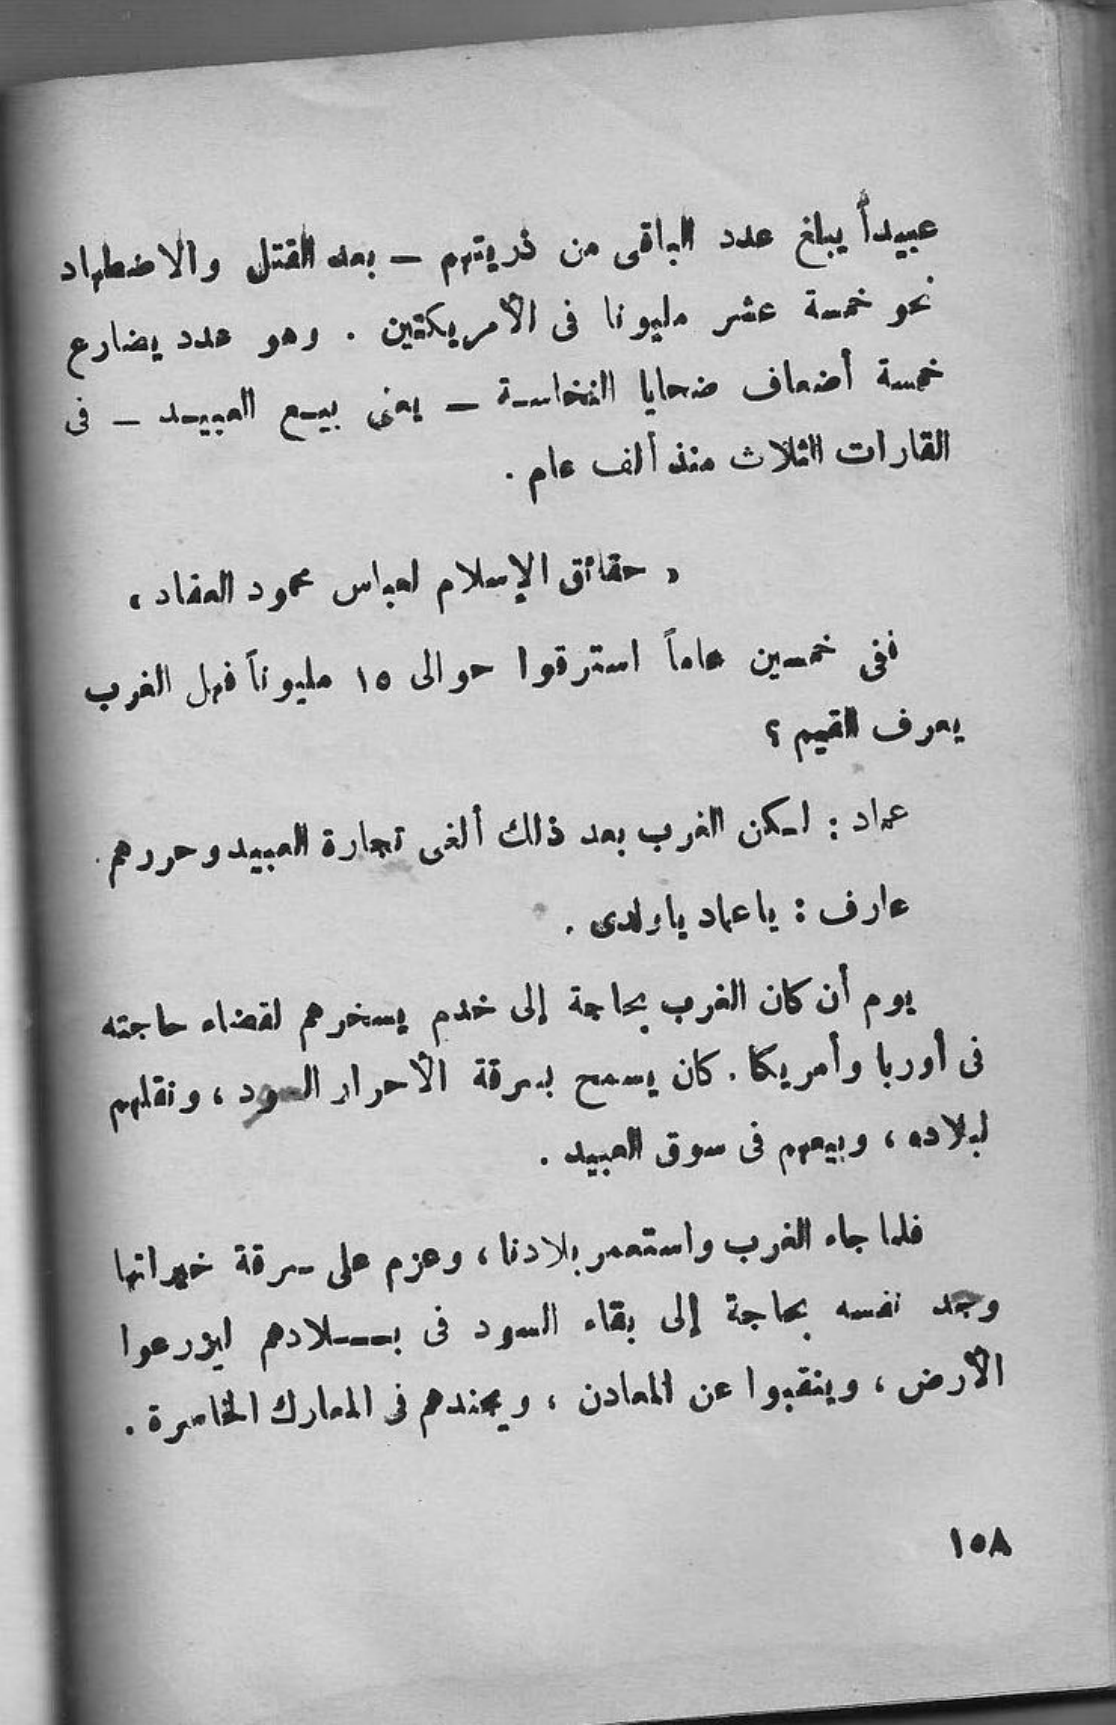 عبيداً يبلغ عدد الباقى من ذريتهم – بعد القتل والاضطهاد
نحو خمسة عشر مليونا فى الأمريكتين . وهو عدد يضارع
خمسة أضعاف ضحايا النخاسة – يعنى بيع العبيد – فى
القارات الثلاث منذ ألف عام .
« حقائق الإسلام لعباس محمود العقاد »
ففى خمسين عاماً استرقوا حوالى ١٥ مليوناً فهل الغرب
يعرف القيم ؟
عماد : لكن الغرب بعد ذلك ألغى تجارة العبيد وحررهم .
عارف : ياعماد ياولدى .
يوم أن كان الغرب بحاجة إلى خدم يسخرهم لقضاء حاجته
فى أوربا وأمريكا . كان يسمح بسرقة الأحرار السود ، ونقلهم
لبلاده ، وبيعهم فى سوق العبيد .
فلما جاء الغرب واستعمر بلادنا ، وعزم على سرقة خيراتها
وجد نفسه بحاجة إلى بقاء السود فى بلادهم ليزرعوا
الأرض ، وينقبوا عن المعادن ، ويجندهم فى المعارك الخاسرة .
١٥٨